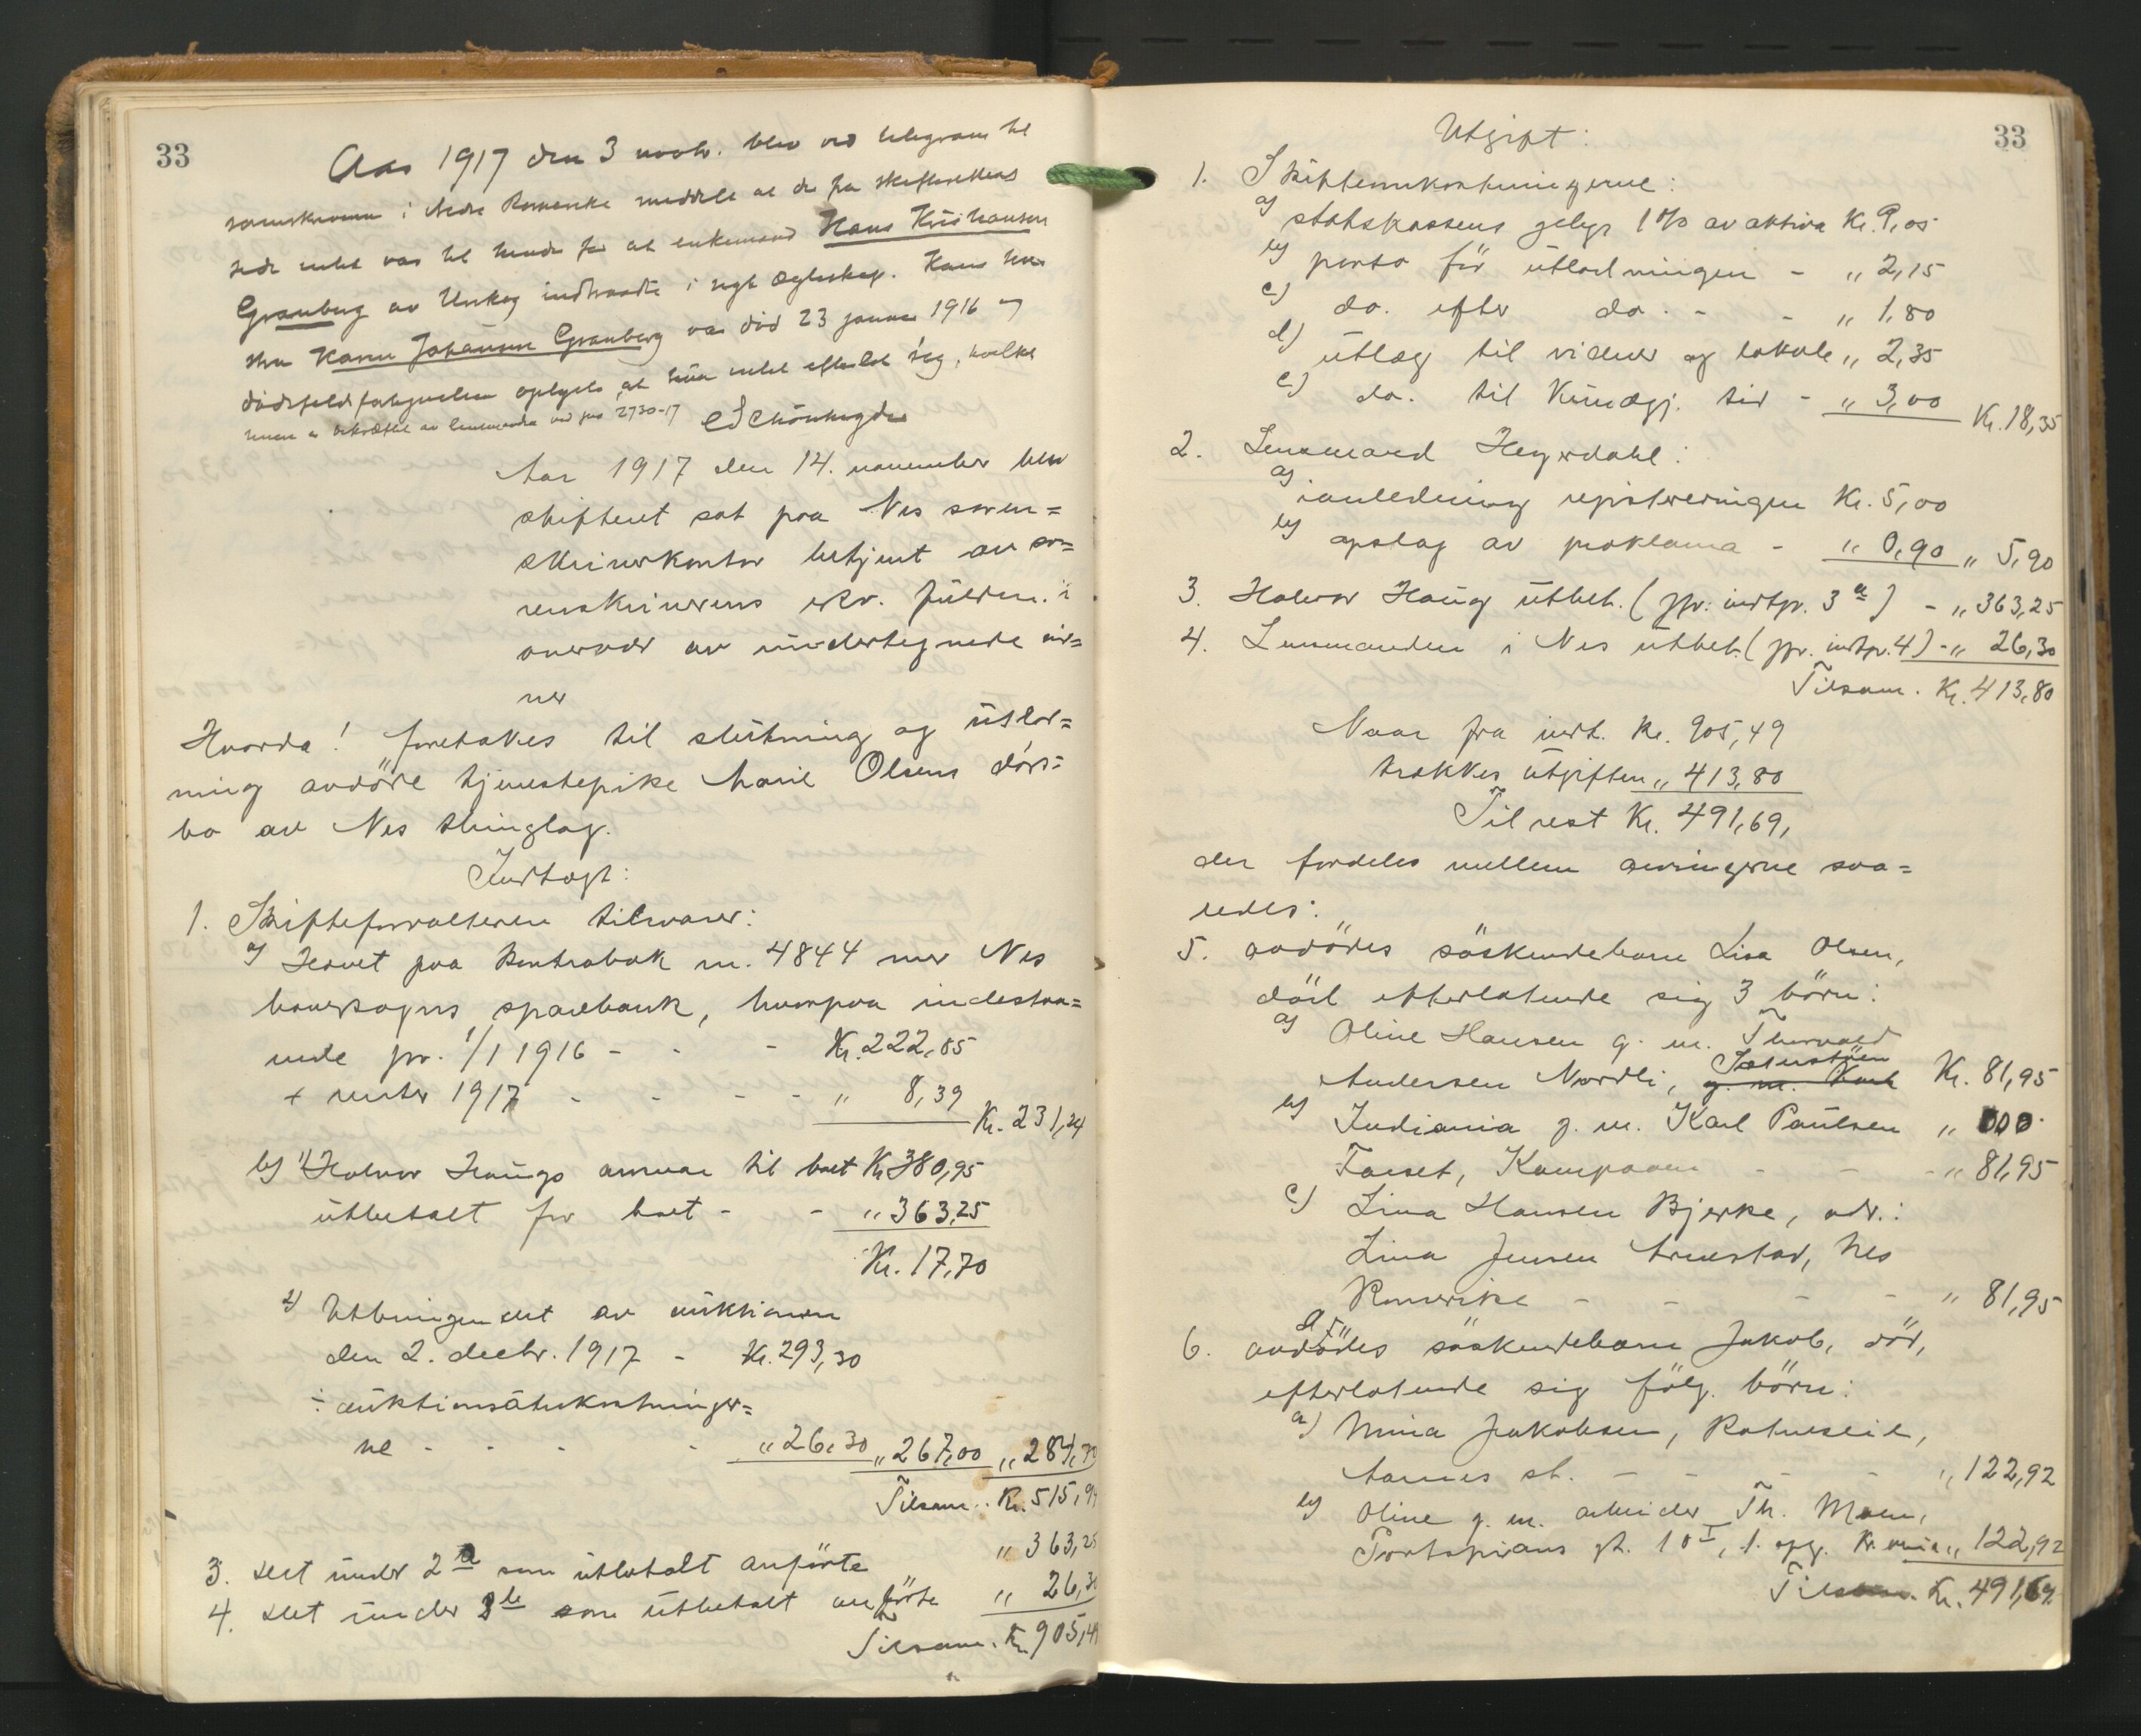 33
Aar 1917 den 3 novbr. blev ved telegram til
sorenskriveren i Nedre Romerike meddelt at der fra skifterettens
side intet var til hinder for at enkemand Hans Kristiansen
Granberg av Urskog indtraadte i nyt egteskap. Hans hus
tru Karen Johansen Granberg var död 23 januar 1916 og
dödsfaldsanmeldelsen oplyste at hun intet efterlot sig, hvilket
senere er bekræftet av lensmanden ved jno 2730-17
Aar 1917 den 14. november blev
skifteret sat paa Nes soren=
skriverkontor betjent av so=
renskriverens edsv. fuldm. i
overvær av undertegnede vid=
ner
Hvorda! foretokes til slutning og utlod=
ning avdöde tjenestepike Marie Olsens döds=
bo av Nes thinglag.
Indtægt:
1. Skifteforvalteren tilsvarer:
a) Hævet paa kontrabok nr. 4844 mer Nes
hovedsogns sparebank, hvorpaa indestaa=
ende pr. 1/1 1916 - - - Kr. 222,85
+ renter 1917 - - - - „ 8,39
Kr. 231,24
b) 1) Halvor Haugs ansvar til boet Kr. 380,95
utbetalt for boet - - „ 363,25
Kr. 17,70
2) Utbringendet av auktionen
den 2. decbr. 1917 - Kr. 293,30
÷ auktionsomkostninger=
ne - - - - „ 26,30 „ 267,00 „ 284,70
Tilsam. Kr. 515,94
3. det under 2 a som utbetalt anförte „ 363,25
4. det under 3 b som utbetalt anförte „ 26,30
Tilsam. Kr. 905,49
33
Utgift:
1. Skifteomkostningerne:
a) statskassens gebyr 1 % av aktiva Kr. 9,05
b) porto för utlodningen - „ 2,15
c) do. efter do. - - „ 1,80
d) utlæg til vidner og lokale „ 2,35
e) do. til Kundgj. tid - „ 3,00 Kr. 18,35
2. Lensmand Heyerdahl:
a) i anledning registreringen Kr. 5,00
b) opslag av proklama - „ 0,90 „ 5,90
3. Halvor Haug utbet. (jfr. indtpr. 3 a) - „ 363,25
4. Lensmanden i Nes utbet. (jfr. indtpr. 4) - „ 26,30
Tilsam. Kr. 413,80
Naar fra indt. Kr. 905,49
trækkes utgiften „ 413,80
Til rest Kr. 491,69,
der fordeles mellem arvingerne saa=
ledes:
5. avdödes söskendebarn Lisa Olsen,
död efterlatende sig 3 börn:
a) Oline Hansen g. m. Thorvald
Andersen Nordli, g. m. Karl Kr. 81,95
b) Indiania g. m. Karl Paulsen „
Farset, Kampaaen - - - „ 81,95
c) Lina Hansen Bjerke, adr.:
Lina Jensen Arnestad, Nes
Romerike - - - - „ 81,95
6. avdödes söskendebarn Jakob, död,
efterlatende sig fölg. börn:
a) Mina Jakobsen,
Aarnes st. - - - - „ 122,92
b) Oline g. m. arbeider Th. Moen,
gt. 10 I, 1. opg. Kr.ania „ 122,92
Tilsam. Kr. 491,69